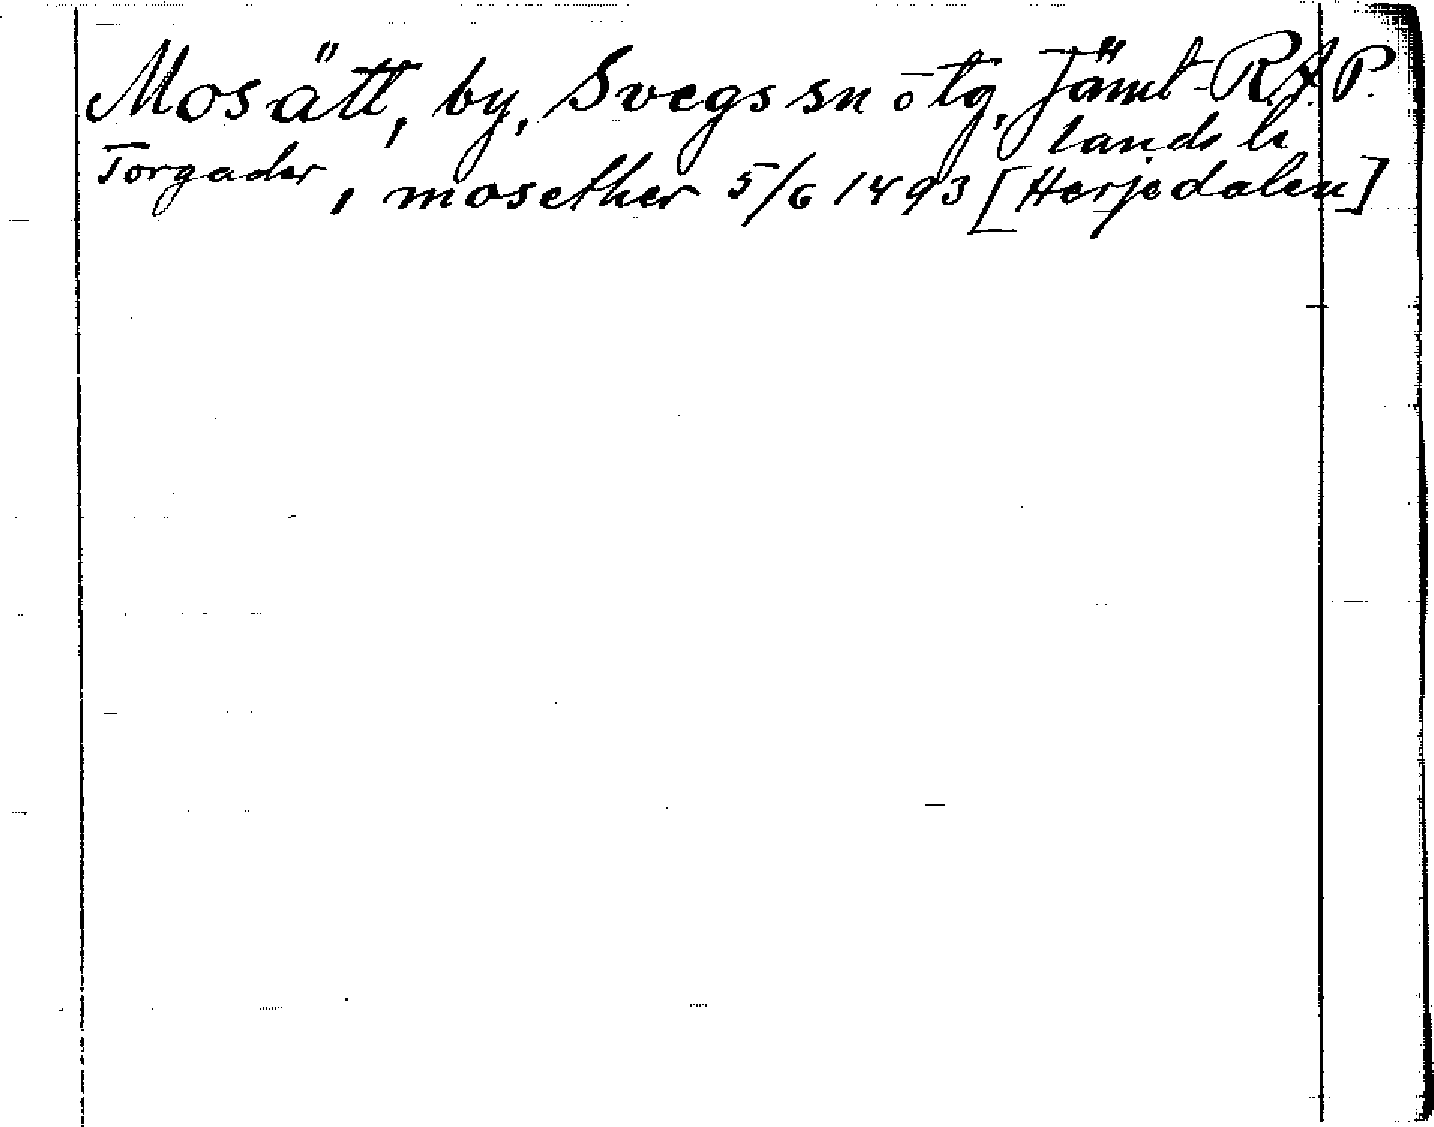 Mosätt, by, Svegs sn o tg, Jämt- R.A.P.
lands l.
Torgader, mosether 5/6 1493 [Herjedalen]